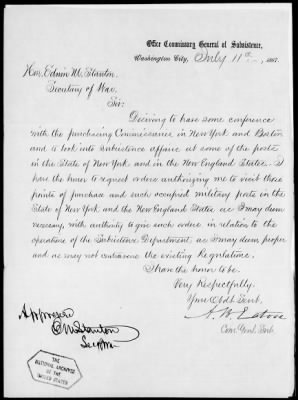 Office Commissary General of Subsistence,
Washington City, July 11th, 1867.
Hon. Edwin M. Stanton
Secretary of War.
Sir:
Desiring to have some conference
with the purchasing Commissaries in New York and Boston
and to look into Subsistence affairs at some of the posts
in the State of New York and in the New England States. I
have the honor to request orders authorizing me to visit these
points of purchase and such occupied military posts in the
State of New York and the New England States as I may deem
necessary, with authority to give such orders in relation to the
operations of the Subsistence Department, as I may deem proper
and as may not contravene the existing Regulations.
I have the honor to be.
Very Respectfully.
Your Obdt. Servt.
A. B. Eaton
Com. Genl. Sub.
Approved
E M Stanton
Sec of War
THE
NATIONAL ARCHIVES
OF THE
UNITED STATES